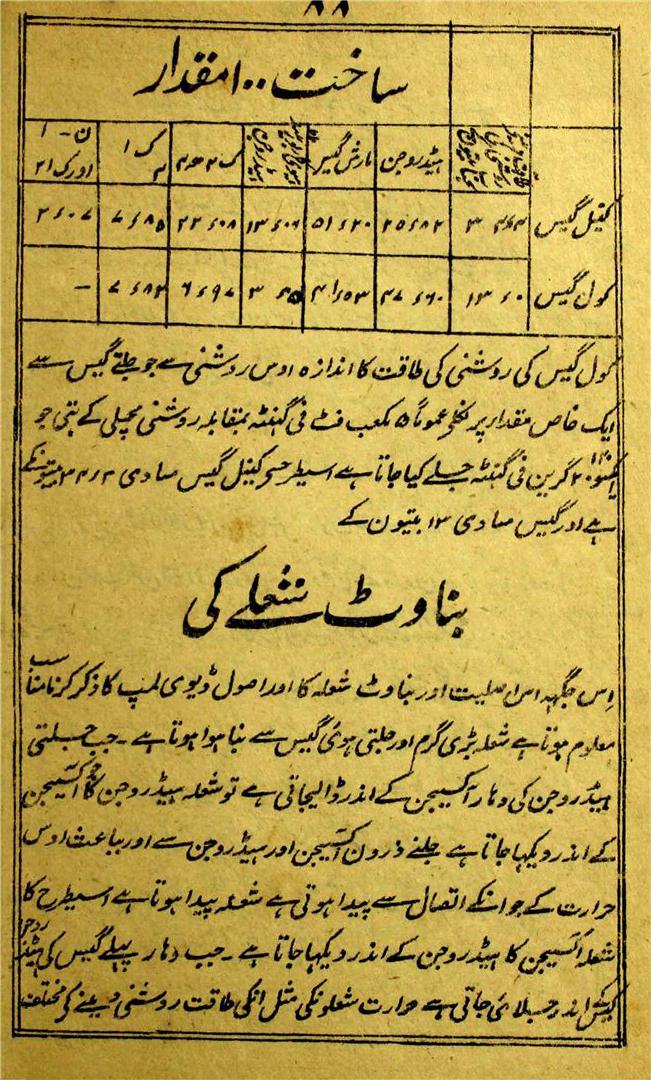 ۸۸
ساخت ۱۰۰ مقدار
ہیڈروجن مارش گیس ک ۲ ھ ۴ ک ا ۲ ن - ا اورک ا ۲
کینل گیس ۳ ۲۵ء۸۲ ۵۱ء۲۰ ۱۳ء۰۶ ۲۲ء۰۸ ۷ء۸۵ ۲ء۰۷
کول گیس ۱۳ء۰ ۴۷ء۶۰ ۴۱ء۵۳ ۳ء۰۵ ۶ء۹۷ ۷ء۸۲ -
کول گیس کی روشنی کی طاقت کا اندازہ اوس روشنی سے جو جلتے گیس سے
ایک خاص مقدار پر نکلی عموماً ۵ مکعب فٹ فی گہنٹہ بمقابلہ روشنی مچھلی کے بتی جو
۱۲۰ گرین فی گہنٹہ جلے کیا جاتا ہے اسیطرح کینل گیس مساوی ۳۴ء۴ بتیونکے
ہے اور گیس مساوی ۱۳ بتیون کے
بناوٹ شعلے کی
اِس جگہہ اصلیت اور بناوٹ شعلہ کا اور اصول ڈیوی لمپ کا ذکر کرنا مناسب
معلوم ہوتا ہے شعلہ بڑی گرم اور جلتی ہوئی گیس سے بنا ہوا ہوتا ہے ۔ جب جلتی
ہیڈروجن کی دہار آکسیجن کے اندر ڈالیجاتی ہے تو شعلہ ہیڈروجن کا جو آکسیجن
کے اندر دیکہا جاتا ہے جلنے ذرون آکسیجن اور ہیڈروجن سے اور بباعث اوس
حرارت کے جو انکے اتصال سے پیدا ہوتی ہے شعلہ پیدا ہوتا ہے اسیطرح کا
شعلہ آکسیجن کا ہیڈروجن کے اندر دیکہا جاتا ہے ۔ جب دہار پہلے گیس کی ہیڈروجن
گیس کے اندر جلائی جاتی ہے حرارت شعلونکی مثل انکی طاقت روشنی دینے کو مختلف